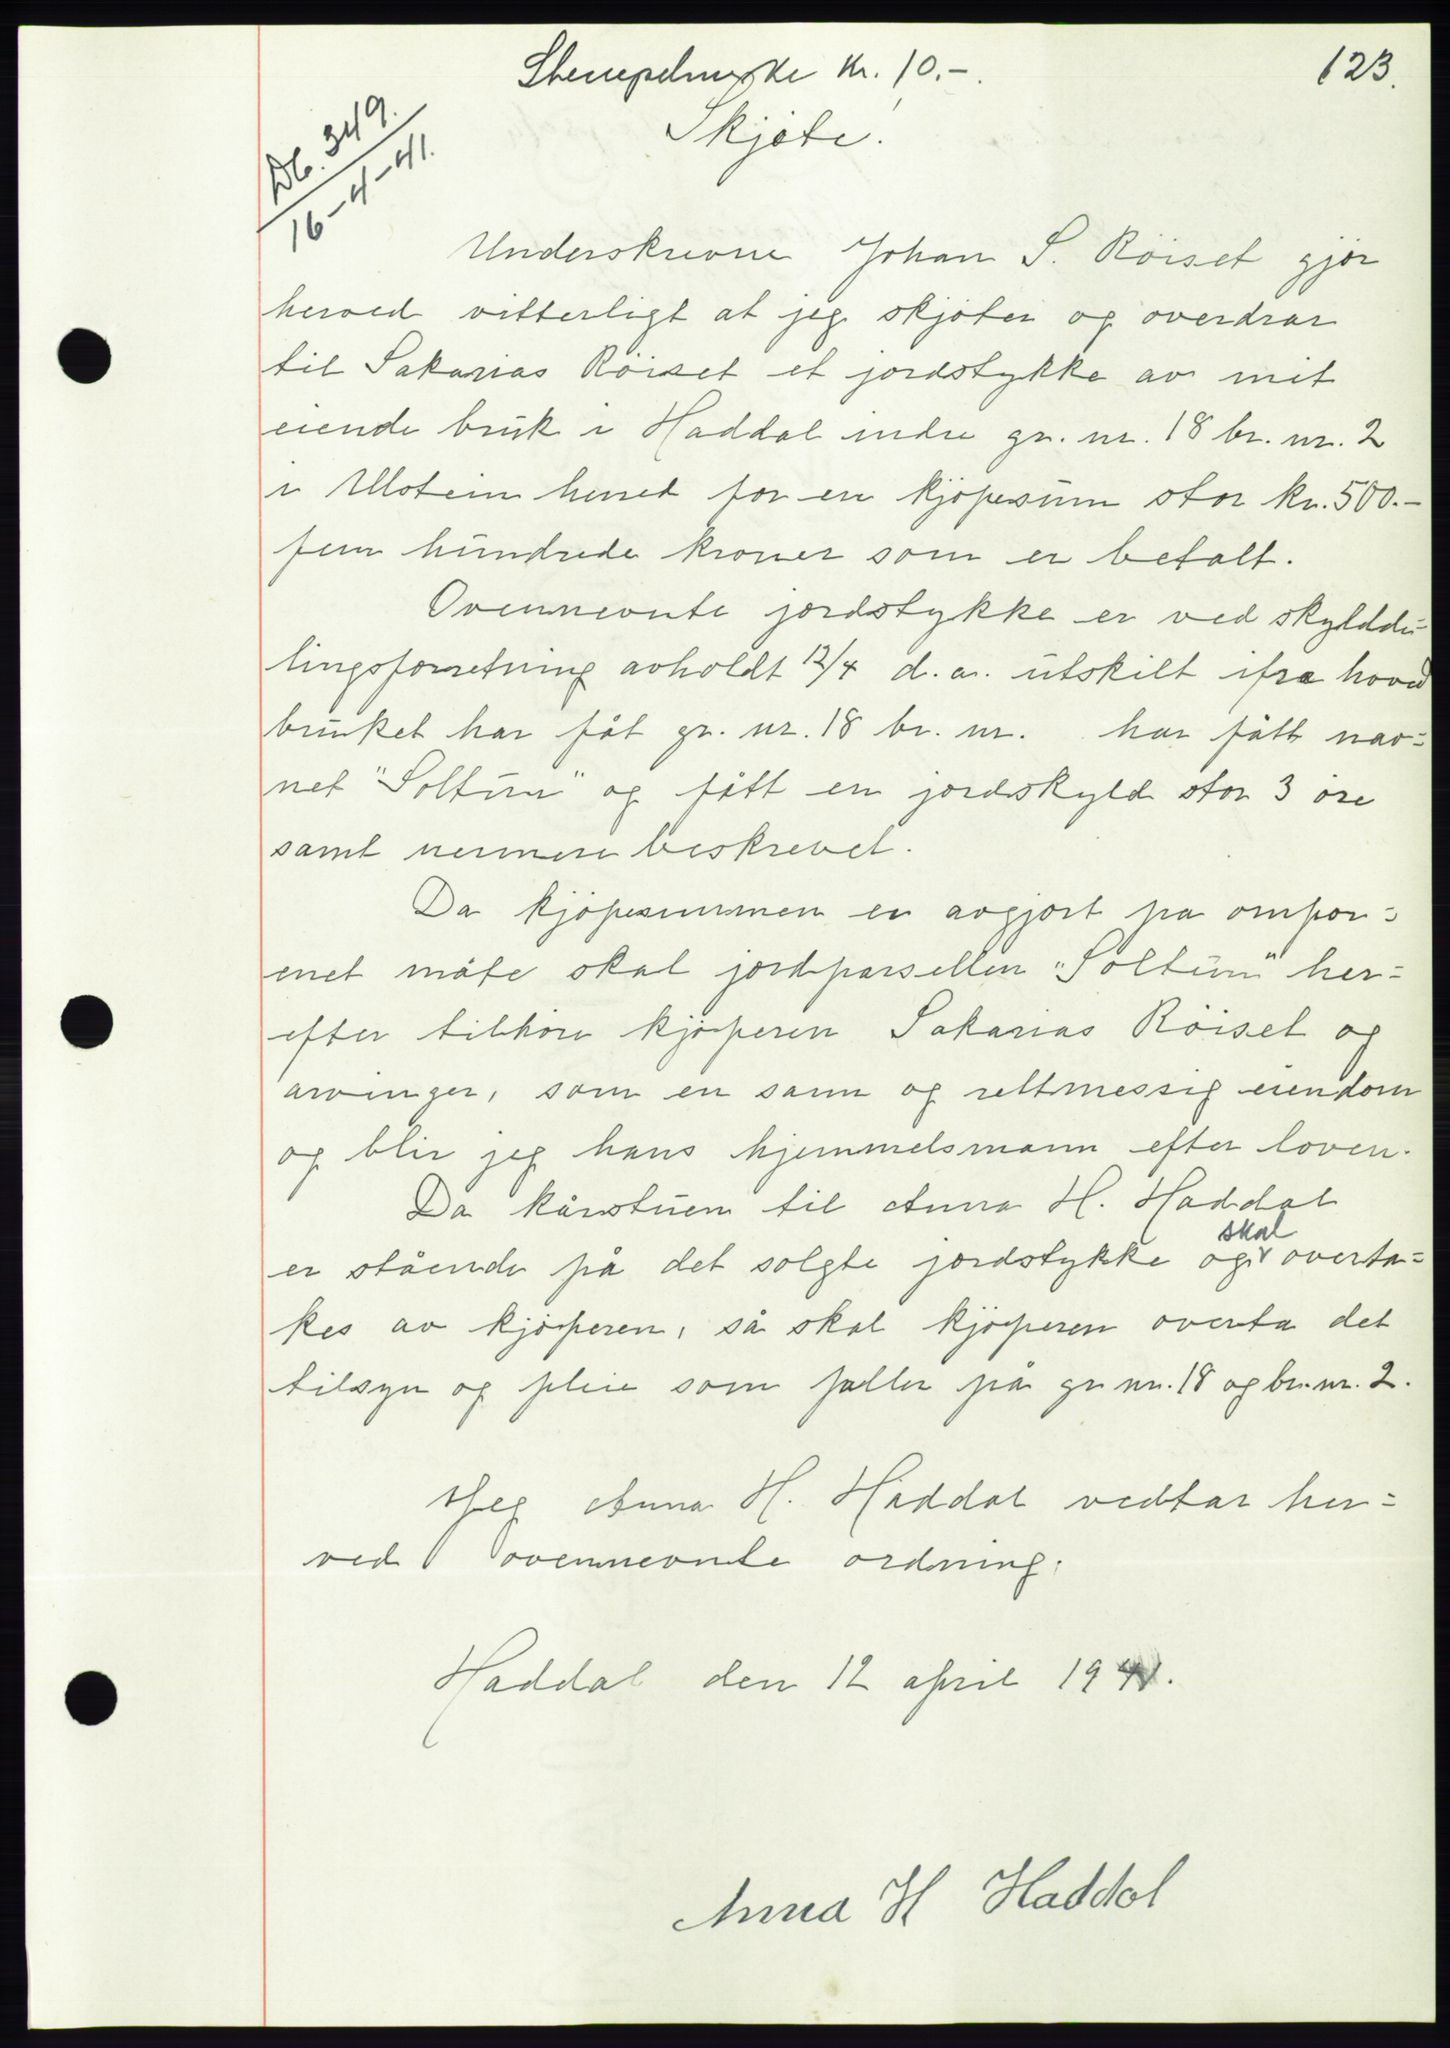 Stempelmerke kr. 10.-.
123.
Skjøte.
Db. 349.
16-4-41.
Underskrevne Johan S. Röiset gjör
herved vitterligt at jeg skjöter og overdrar
til Sakarias Röiset et jordstykke av mit
eiende bruk i Haddal indre gr. nr. 18 br. nr. 2
i Ulstein herred for en kjöpesum stor kr. 500.-
fem hundrede kroner som er betalt.
Ovennevnte jordstykke er ved skyldde=
lingsforretning avholdt 12/4 d.a. utskilt ifra hoved
bruket har fåt gr. nr. 18 br. nr. har fått nav=
net "Soltun" og fått en jordskyld stor 3 öre
samt nermere beskrevet.
Da kjöpesummen er avgjort pa omfor=
enet måte skal jordparsellen "Soltun" her=
efter tilhöre kjöperen Sakarias Röiset og
arvinger, som en sann og rettmessig eiendom
og blir jeg hans hjemmelsmann efter loven.
Da kårstuen til Anna H. Haddal
er stående på det solgte jordstykke og skal overta=
kes av kjöperen, så skal kjöperen overta det
tilsyn og pleie som faller på gr nr. 18 og br. nr. 2.
Jeg Anna H. Haddal vedtar her=
ved ovennevnte ordning.
Haddal den 12 april 1941.
Anna H Haddal